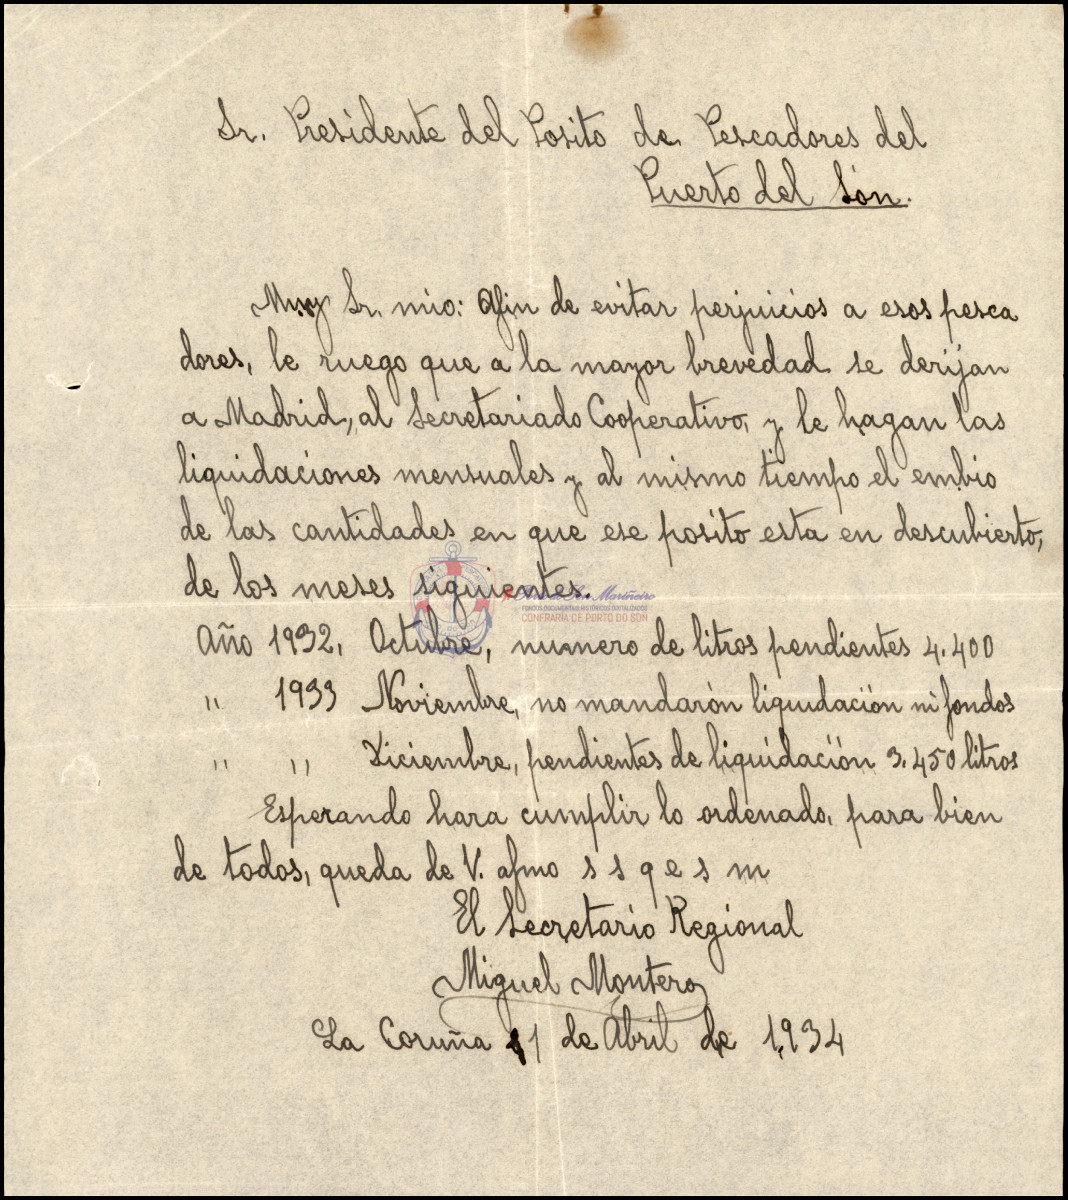 Sr. Presidente del Posito de Pescadores del
Puerto del Són.
Muy Sr. mio: Afin de evitar perjuicios a esos pesca
dores, le ruego que a la mayor brevedad se derijan
a Madrid, al Secretariado Cooperativo, y le hagan las
liquidaciones mensuales y al mismo tiempo el embio
de las cantidades en que ese posito esta en descubierto,
de los meses siguientes.
Año 1932, Octubre, numero de litros pendientes 4.400
" 1933 Noviembre, no mandarón liquidación ni fondos
" " Diciembre, pendientes de liquidación 3.450 litros
Esperando hara cumplir lo ordenado, para bien
de todos, queda de V. afmo s s q e s m
El Secretario Regional
Miguel Montero
La Coruña 11 de Abril de 1,934
Porto do Son Mariñeiro
FONDOS DOCUMENTAIS HISTÓRICOS DIGITALIZADOS
CONFRARÍA DE PORTO DO SON